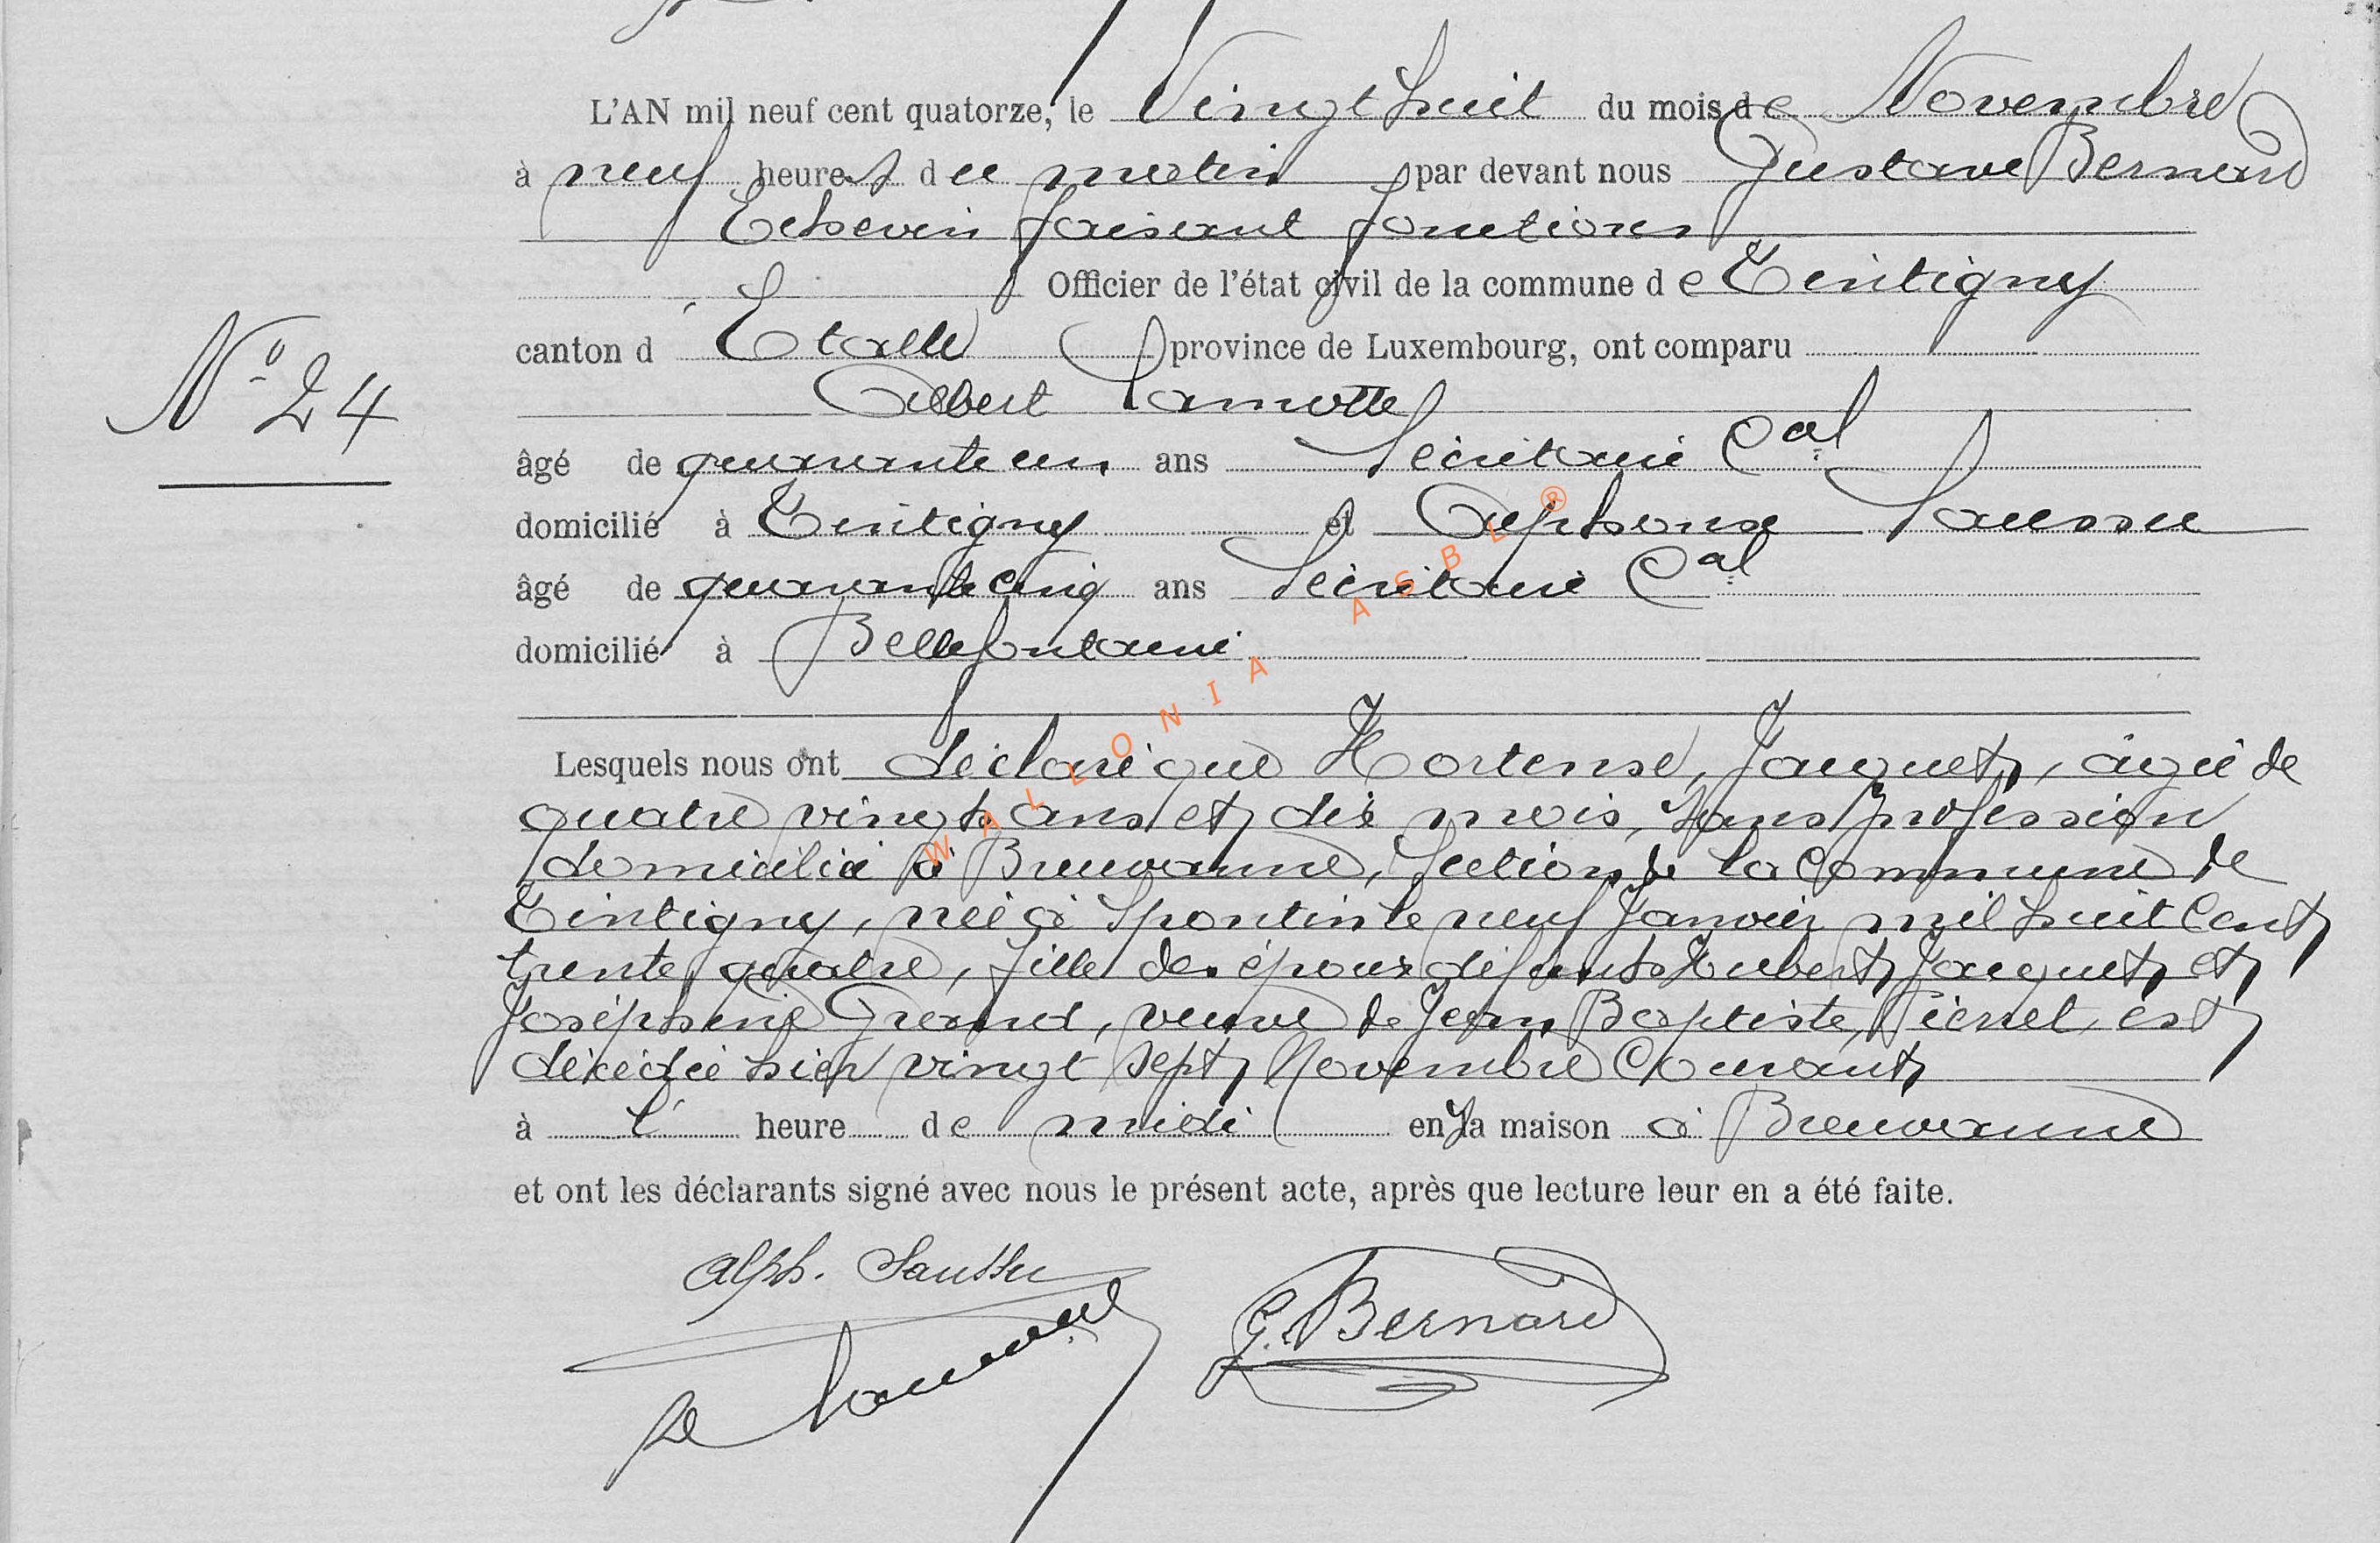 L'AN mil neuf cent quatorze, le Vingt huit du mois de Novembre
à neuf heures du matin par devant nous Gustave Bernard
Echevin faisant fonctions
Officier de l'état civil de la commune de Tintigny
canton d'Etalle province de Luxembourg, ont comparu
Albert Lamotte
N° 24
âgé de quarante un ans Secrétaire Cal
domicilié à Tintigny et Alphonse Saussu
âgé de quarante cinq ans Secrétaire Cal
domicilié à Bellefontaine
Lesquels nous ont déclaré que Hortense, Jaquet, âgée de
quatre vingts ans et dix mois, sans profession
domiciliée à Breuvanne, Section de la Commune de
Tintigny, née à Spontin le neuf Janvier mil huit Cent
trente quatre, fille des époux défunts Hubert Jaquet et
Joséphine Grand, veuve de Jean Baptiste, Pierret, est
décédée hier vingt sept Novembre Courant
à l' heure de midi en sa maison à Breuvanne
et ont les déclarants signé avec nous le présent acte, après que lecture leur en a été faite.
Alph. Saussu
G. Bernard
WALLONIA ASBL ®